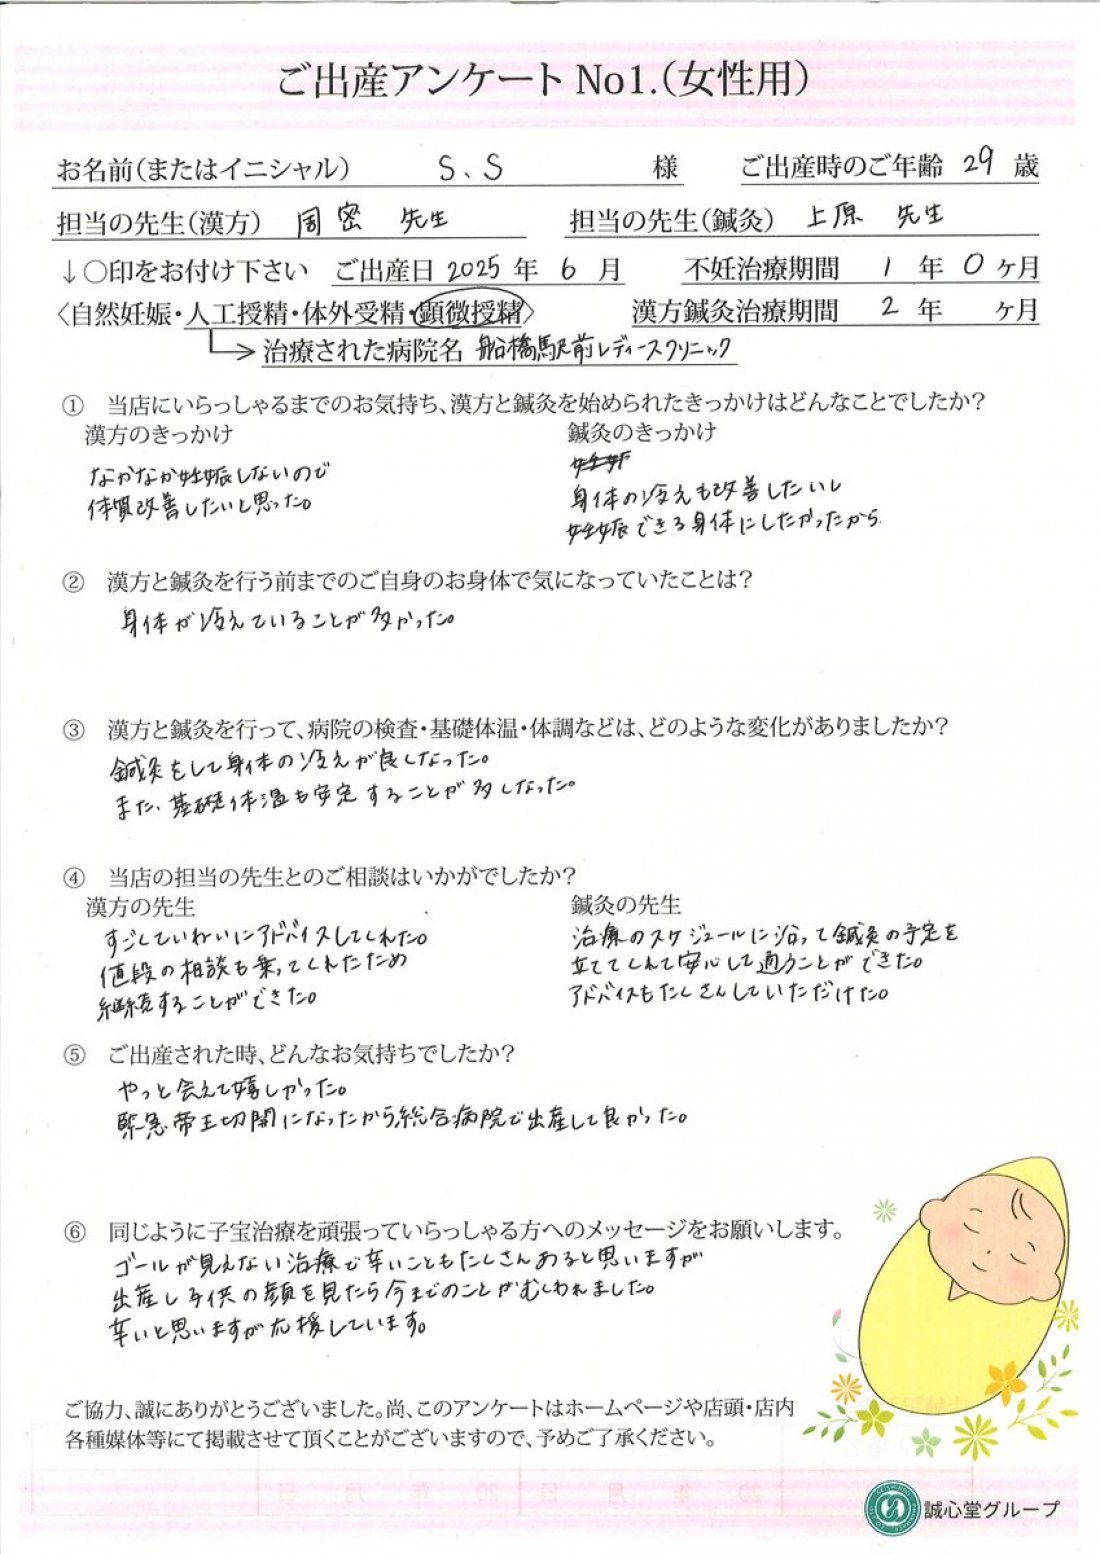 ご出産アンケート No1.(女性用)
お名前(またはイニシャル) S.S 様 ご出産時のご年齢 29 歳
担当の先生(漢方) 周密 先生 担当の先生(鍼灸) 上原 先生
↓○印をお付け下さい ご出産日 2025 年 6 月 不妊治療期間 1 年 0 ヶ月
〈自然妊娠・人工授精・体外受精・顕微授精〉 漢方鍼灸治療期間 2 年 ヶ月
治療された病院名 船橋駅前レディースクリニック
① 当店にいらっしゃるまでのお気持ち、漢方と鍼灸を始められたきっかけはどんなことでしたか?
漢方のきっかけ
なかなか妊娠しないので
体質改善したいと思った。
鍼灸のきっかけ
身体の冷えも改善したいし
妊娠できる身体にしたかったから
② 漢方と鍼灸を行う前までのご自身のお身体で気になっていたことは?
身体が冷えていることが多かった。
③ 漢方と鍼灸を行って、病院の検査・基礎体温・体調などは、どのような変化がありましたか?
鍼灸をして身体の冷えが良くなった。
また、基礎体温も安定することが多くなった。
④ 当店の担当の先生とのご相談はいかがでしたか?
漢方の先生
すごくていねいにアドバイスしてくれた。
値段の相談も乗ってくれたため
継続することができた。
鍼灸の先生
治療のスケジュールに沿って鍼灸の予定を
立ててくれて安心して通うことができた。
アドバイスもたくさんしていただけた。
⑤ ご出産された時、どんなお気持ちでしたか?
やっと会えて嬉しかった。
緊急帝王切開になったから総合病院で出産して良かった。
⑥ 同じように子宝治療を頑張っていらっしゃる方へのメッセージをお願いします。
ゴールが見えない治療で辛いこともたくさんあると思いますが
出産し子供の顔を見たら今までのことがむくわれました。
辛いと思いますが応援しています。
ご協力、誠にありがとうございました。尚、このアンケートはホームページや店頭・店内
各種媒体等にて掲載させて頂くことがございますので、予めご了承ください。
誠心堂グループ